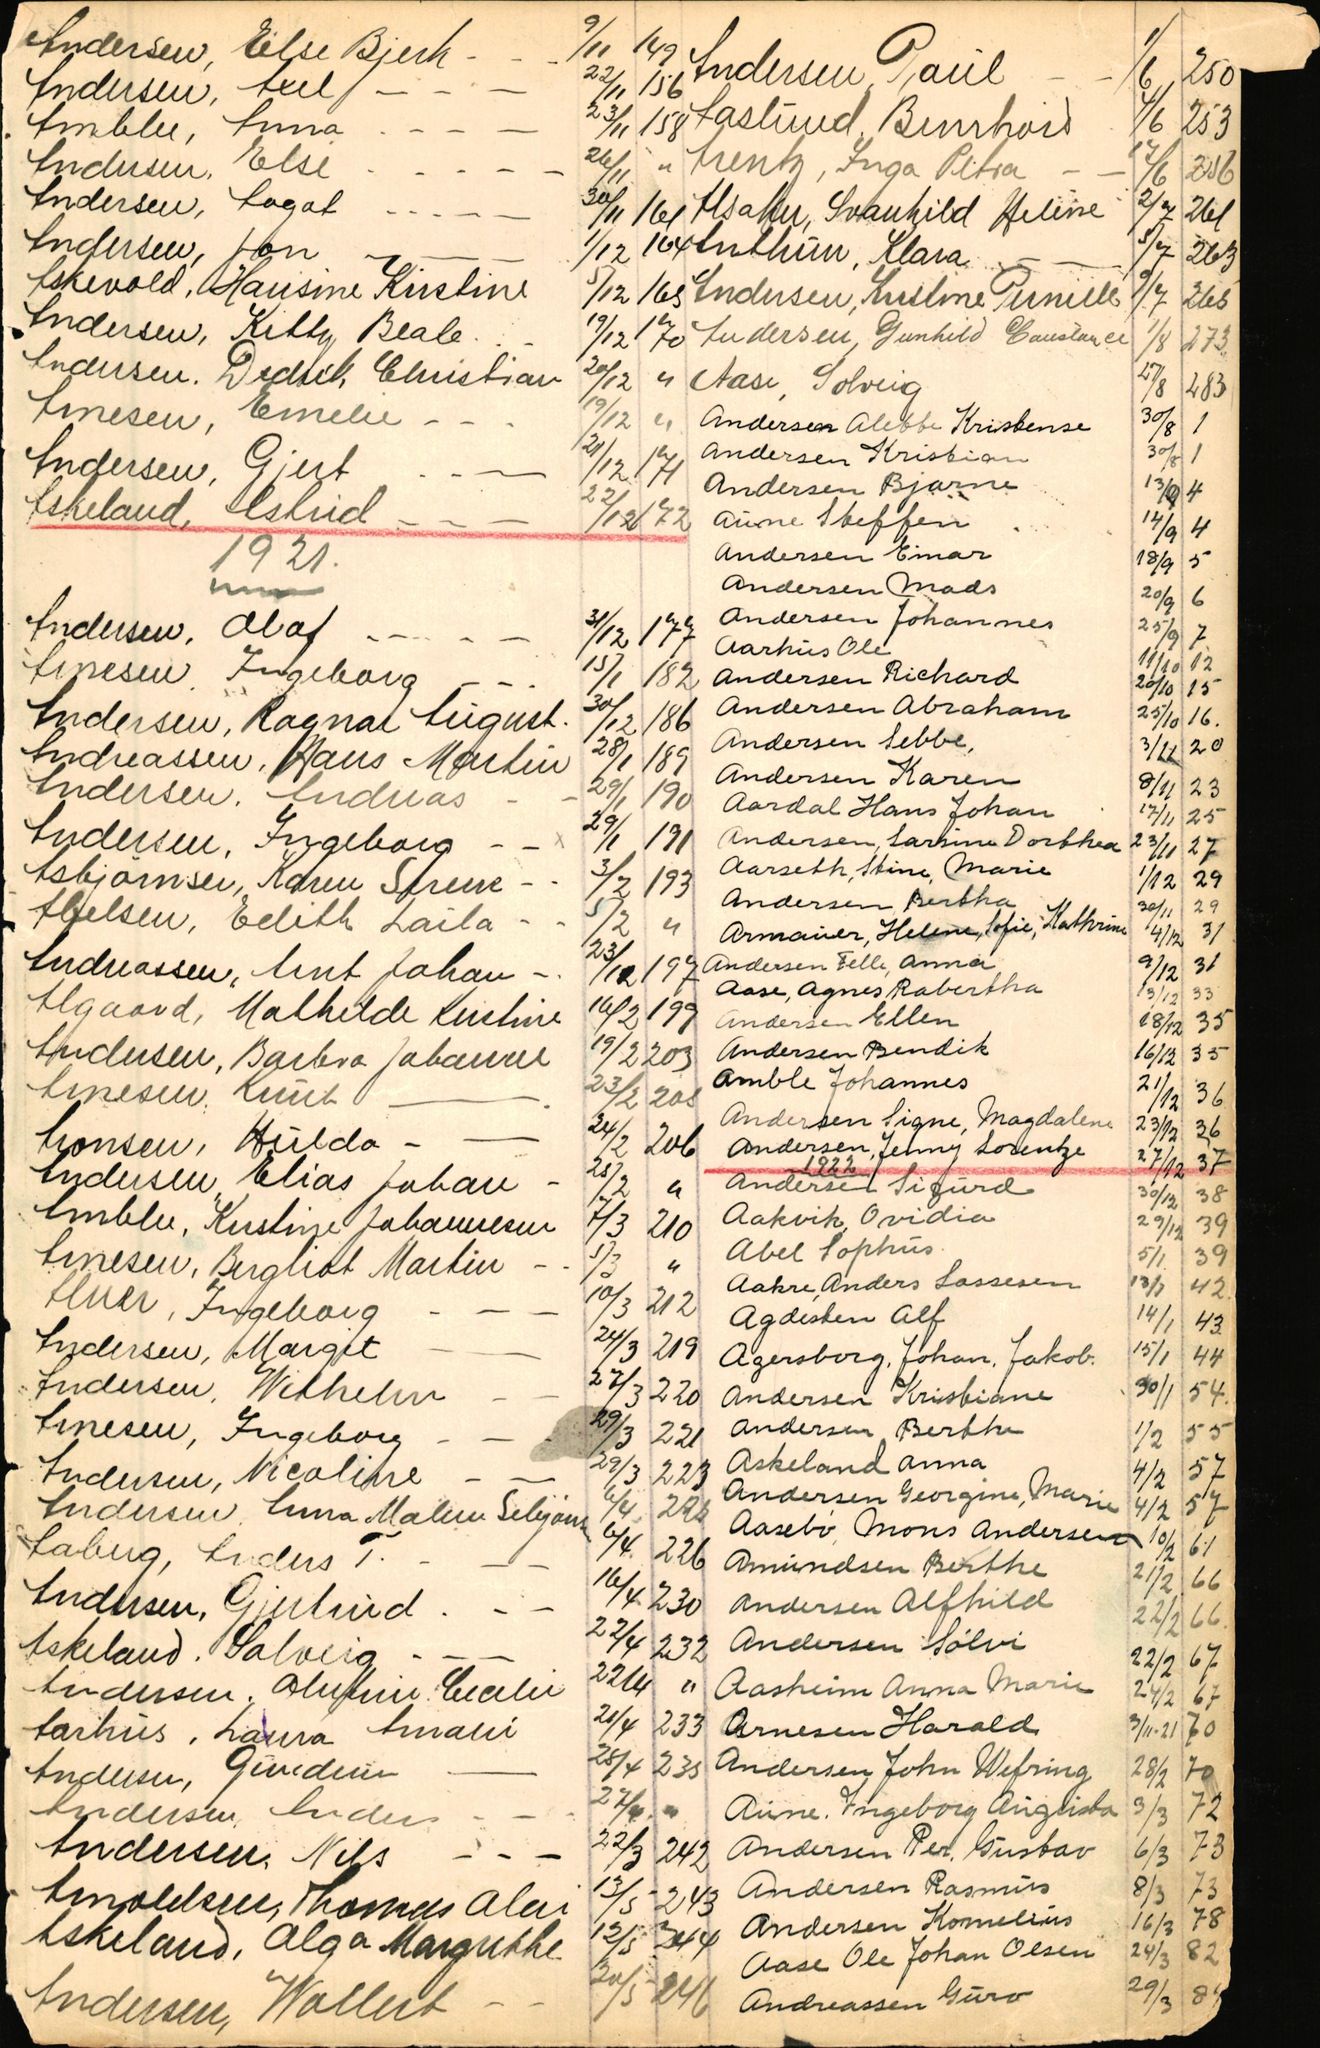 Andersen, Else Bjerk - - - 9/11 149
Andersen, Axel - - - - 22/11 156
Amble, Anna - - - - 23/11 158
Andersen, Else - - - - - 26/11 "
Andersen, Aagot - - - - - 30/11 161
Andersen, Jon - - - 1/12 164
Askevold, Hansine Kirstine 5/12 165
Andersen, Kitty Beate - - - 19/12 170
Andersen. Didrik Christian 20/12 "
Arnesen, Emelie - - - 19/12 "
Andersen, Gjert - - - 21/12 171
Askeland, Astrid - - - 22/12 172
1921.
Andersen, Olaf - - - - - 31/12 177
Arnesen, Ingeborg - - - 15/1 182
Andersen, Ragnar August. 30/12 186
Andreassen, Hans Martin 28/1 189
Andersen, Andreas - - 29/1 190
Andersen, Ingeborg - - 29/1 191
Asbjörnsen, Karen Serene - - 3/2 193
Abelsen, Edith Laila - - 5/2 "
Andreassen, Arnt Johan - - 23/12 197
Algaard, Mathilde Kirstine 16/2 199
Andersen, Barbra Johanne 19/2 203
Arnesen, Knut - 23/2 205
Aronsen, Hulda - - 24/2 206
Andersen, Elias Johan - 25/2 "
Amble, Kristine Johannesen 7/3 210
Arnesen, Bergliot Martin - - 5/3 "
Alver, Ingeborg - - - 10/3 212
Andersen, Margit - - 24/3 219
Andersen, Wilhelm - - 27/3 220
Arnesen, Ingeborg - - - 29/3 221
Andersen, Nicoline - - 29/3 223
Andersen, Anna Malene 6/4
Aaberg, Anders T. - - 6/4 226
Andersen, Gjertrud. - - 16/4 230
Askeland. Solveig - - - 22/4 232
Andersen. Cecilie 22/4 "
Aarhus, Laura Amalie 21/4 233
Andersen, - 25/4 235
Andersen, Anders - - 27/4 "
Andersen, Nils - - - 22/3 242
Arnoldsen, Thomas 13/5 243
Askeland, Olga Margrethe 12/5 244
Andersen, Wollert - - 20/5 246
Andersen, Paul - - 1/6 250
Aastund, Bernhard 4/6 253
Arentz, Inga Petra - - 17/6 256
Alsaker, Svanhild Helene 2/7 261
Anthun, Klara - - 5/7 263
Andersen, Kristine Pernille 9/7 265
Andersen, Gunhild Constance 1/8 273
Aase, Solveig 27/8 283
Andersen Alebbe Kristense 30/8 1
Andersen Kristian 30/8 1
Andersen Bjarne 13/9 4
Aune Steffen 14/9 4
Andersen Einar 18/9 5
Andersen Mads 20/9 6
Andersen Johannes 25/9 7
Aarhus Ole 11/10 12
Andersen Richard 20/10 15
Andersen Abraham 25/10 16.
Andersen Sebbe, 3/11 20
Andersen Karen 8/11 23
Aardal Hans Johan 17/11 25
Andersen, Sarine Dorthea 23/11 27
Aarseth, Stine, Marie 1/12 29
Andersen Bertha 30/11 29
Armauer, Helene, Sofie, Kathrine 4/12 31
Andersen Felle, Anna 9/12 31
Aase, Agnes Robertha 13/12 33
Andersen Ellen 18/12 35
Andersen Bendik 16/12 35
Amble Johannes 21/12 36
Andersen Signe, Magdalene 23/12 36
Andersen, Jenny Lorentze 27/12 37
1922
Andersen Sigurd 30/12 38
Aakvik, Ovidia 29/12 39
Abel Sophus 5/1 39
Aakre, Anders Lassesen 13/1 42
Agdisten Alf 14/1 43
Agersborg, Johan. Jakob. 15/1 44
Andersen Kristiane 30/1 54.
Andersen Berthe 1/2 55
Askeland Anna 4/2 57
Andersen Georgine, Marie 4/2 57
Aasebö, Mons Andersen 10/2 61
Amundsen Berthe 21/2 66
Andersen Alfhild 22/2 66.
Andersen Sölvi 22/2 67
Aasheim Anna Marie 24/2 67
Arnesen Harald 3/11-21 70
Andersen John Wefring 28/2 70
Aune. Ingeborg Augusta 3/3 72
Andersen Per. Gustav 6/3 73
Andersen Rasmus 8/3 73
Andersen Kornelius 16/3 78
Aase Ole Johan Olsen 24/3 82
Andreassen Guro 29/3